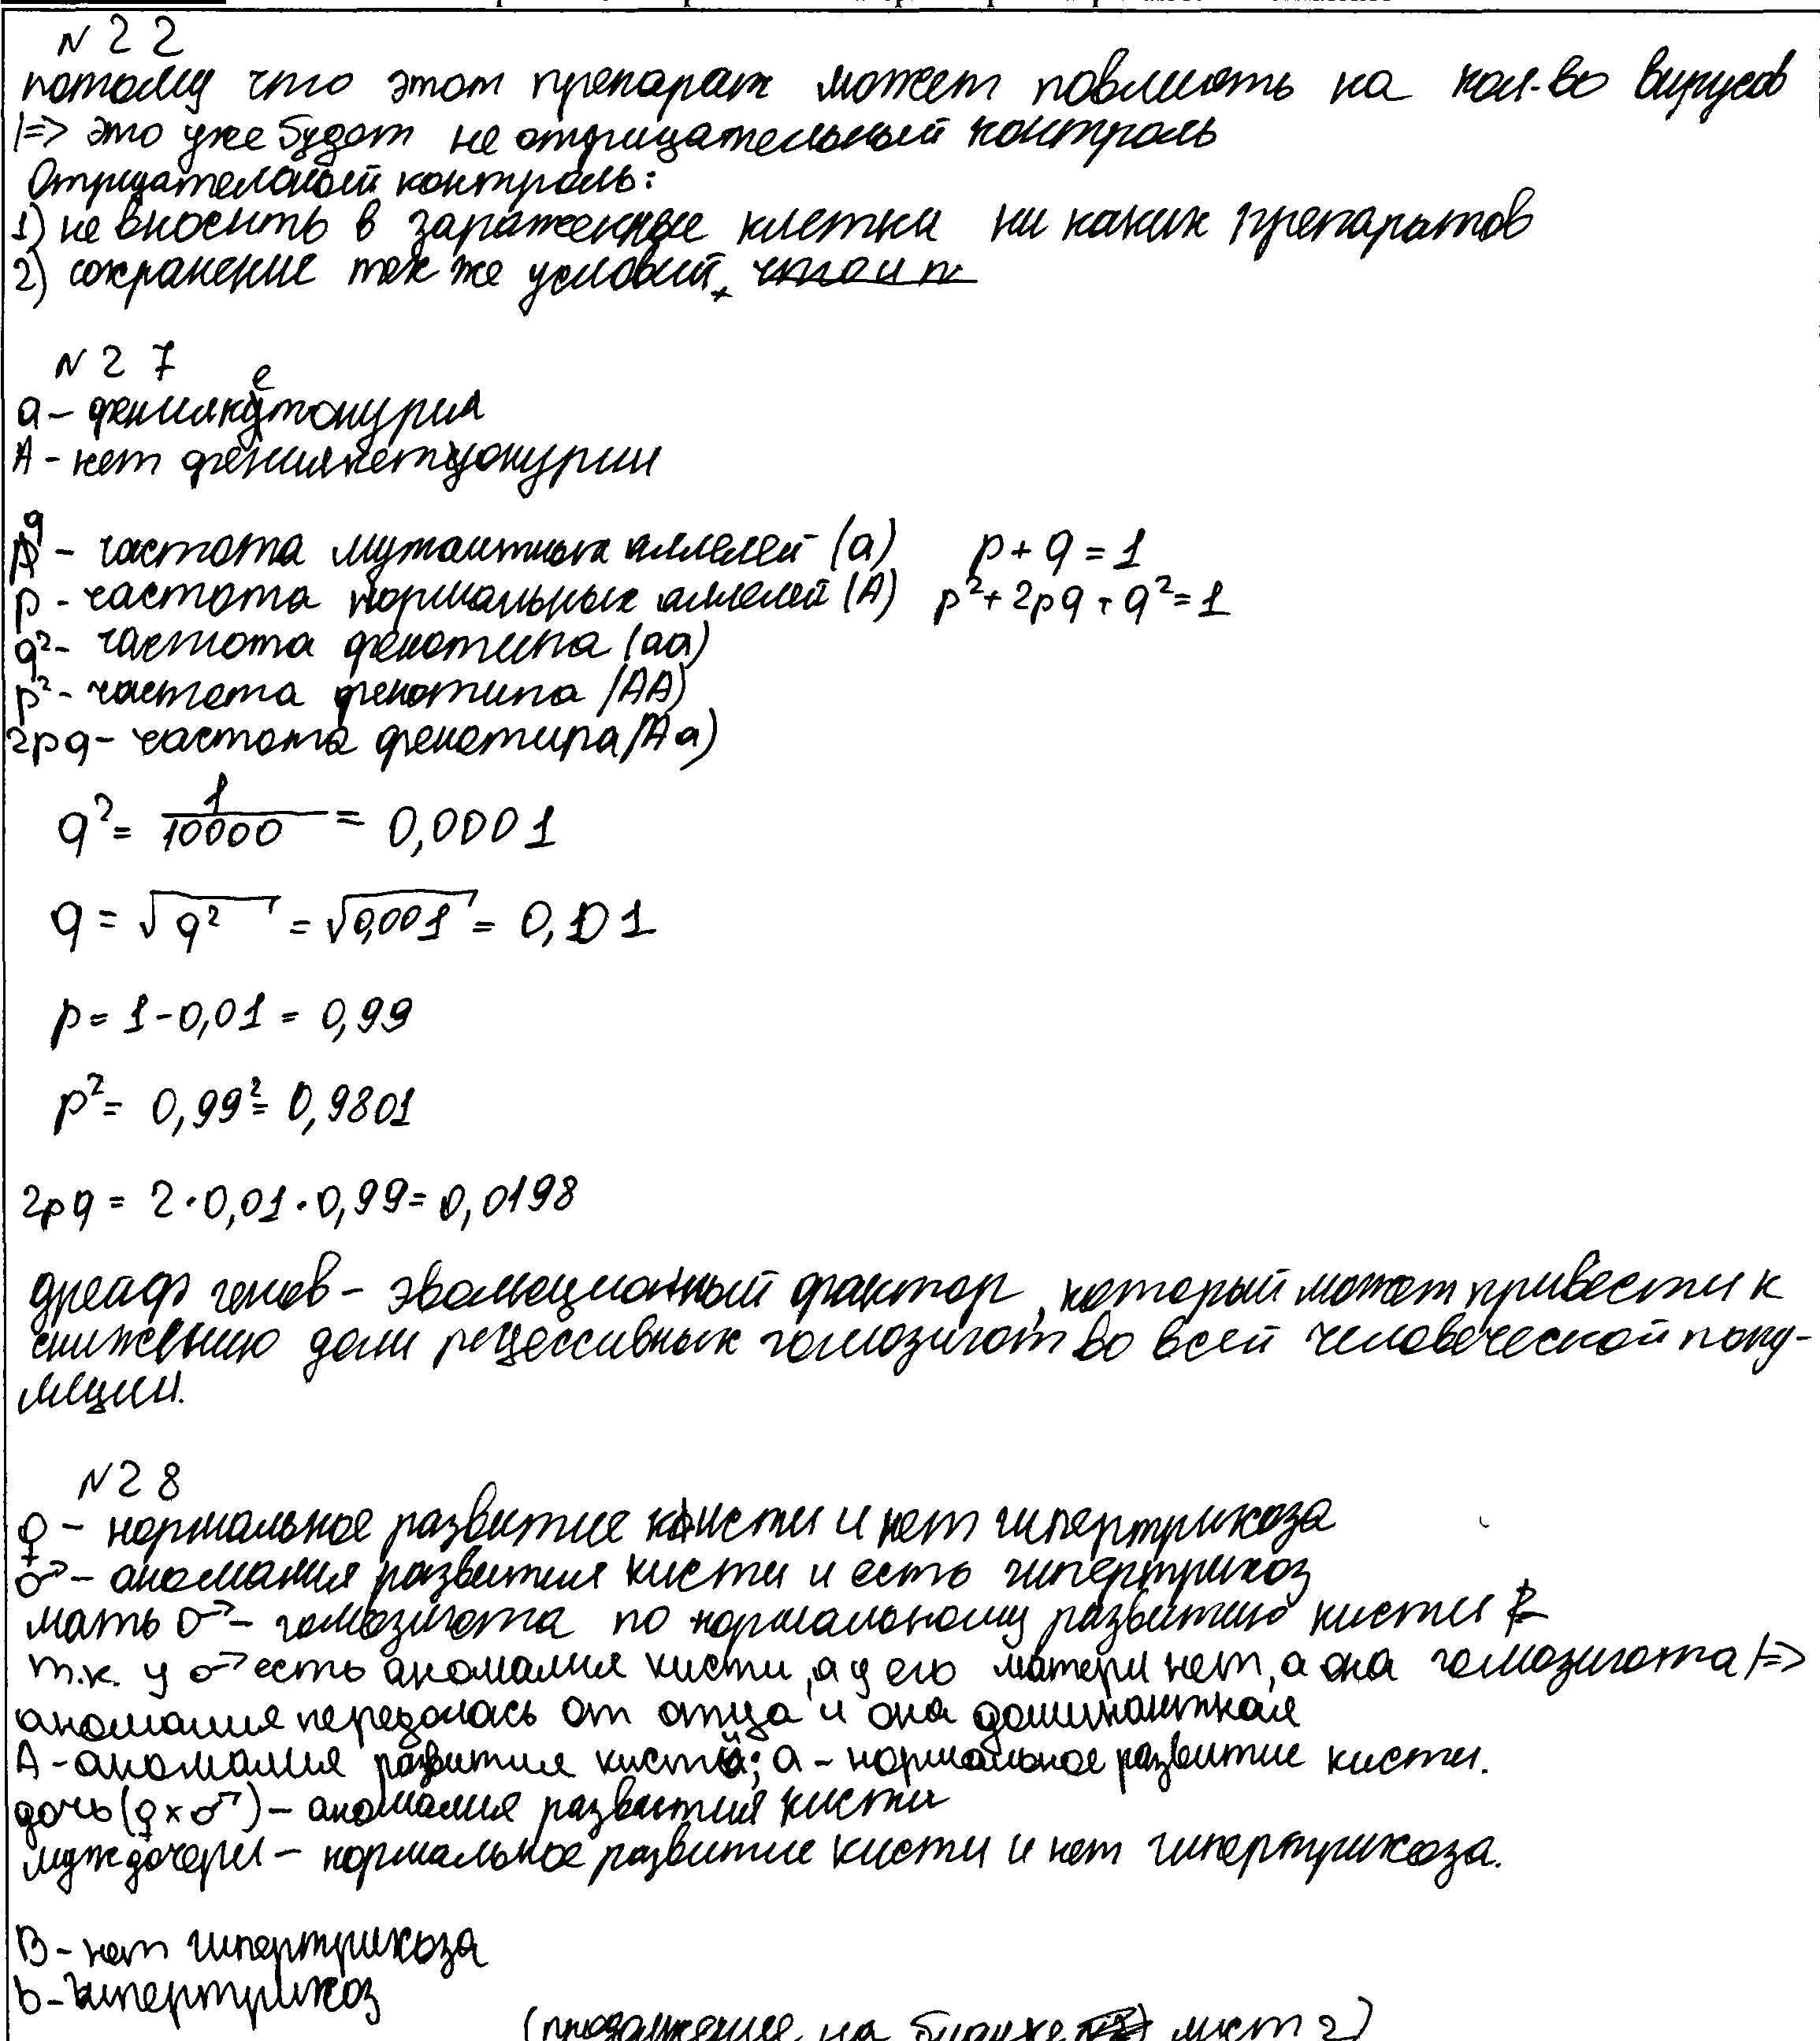 N 22
потому что этот препарат может повлиять на кол-во вирусов
|=> это уже будет не отрицательный контроль
Отрицательный контроль:
1) не вносить в зараженные клетки ни каких препаратов
2) сохранение тех же условий
N 27
а - фенилкетонурия
А - нет фенилкетонурии
q - частота мутантных аллелей (а) p + q = 1
p - частота нормальных аллелей (А) p² + 2pq + q² = 1
q² - частота фенотипа (аа)
p² - частота фенотипа (АА)
2pq - частота фенотипа (Аа)
q² = 1/10000 = 0,0001
q = √q² = √0,001 = 0,01
p = 1 - 0,01 = 0,99
p² = 0,99² = 0,9801
2pq = 2 · 0,01 · 0,99 = 0,0198
дрейф генов - эволюционный фактор, который может привести к
снижению доли рецессивных гомозигот во всей человеческой попу-
ляции.
N 28
♀ - нормальное развитие кисти и нет гипертрихоза
♂ - аномалия развития кисти и есть гипертрихоз
мать ♂ - гомозигота по нормальному развитию кисти
т.к. у ♂ есть аномалия кисти, а у его матери нет, а она гомозигота |=>
аномалия передалась от отца и она доминантная
А - аномалия развития кисти; а - нормальное развитие кисти.
дочь (♀ x ♂) - аномалия развития кисти
муж дочери - нормальное развитие кисти и нет гипертрихоза.
В - нет гипертрихоза
b - гипертрихоз
(продолжение на бланке лист 2)